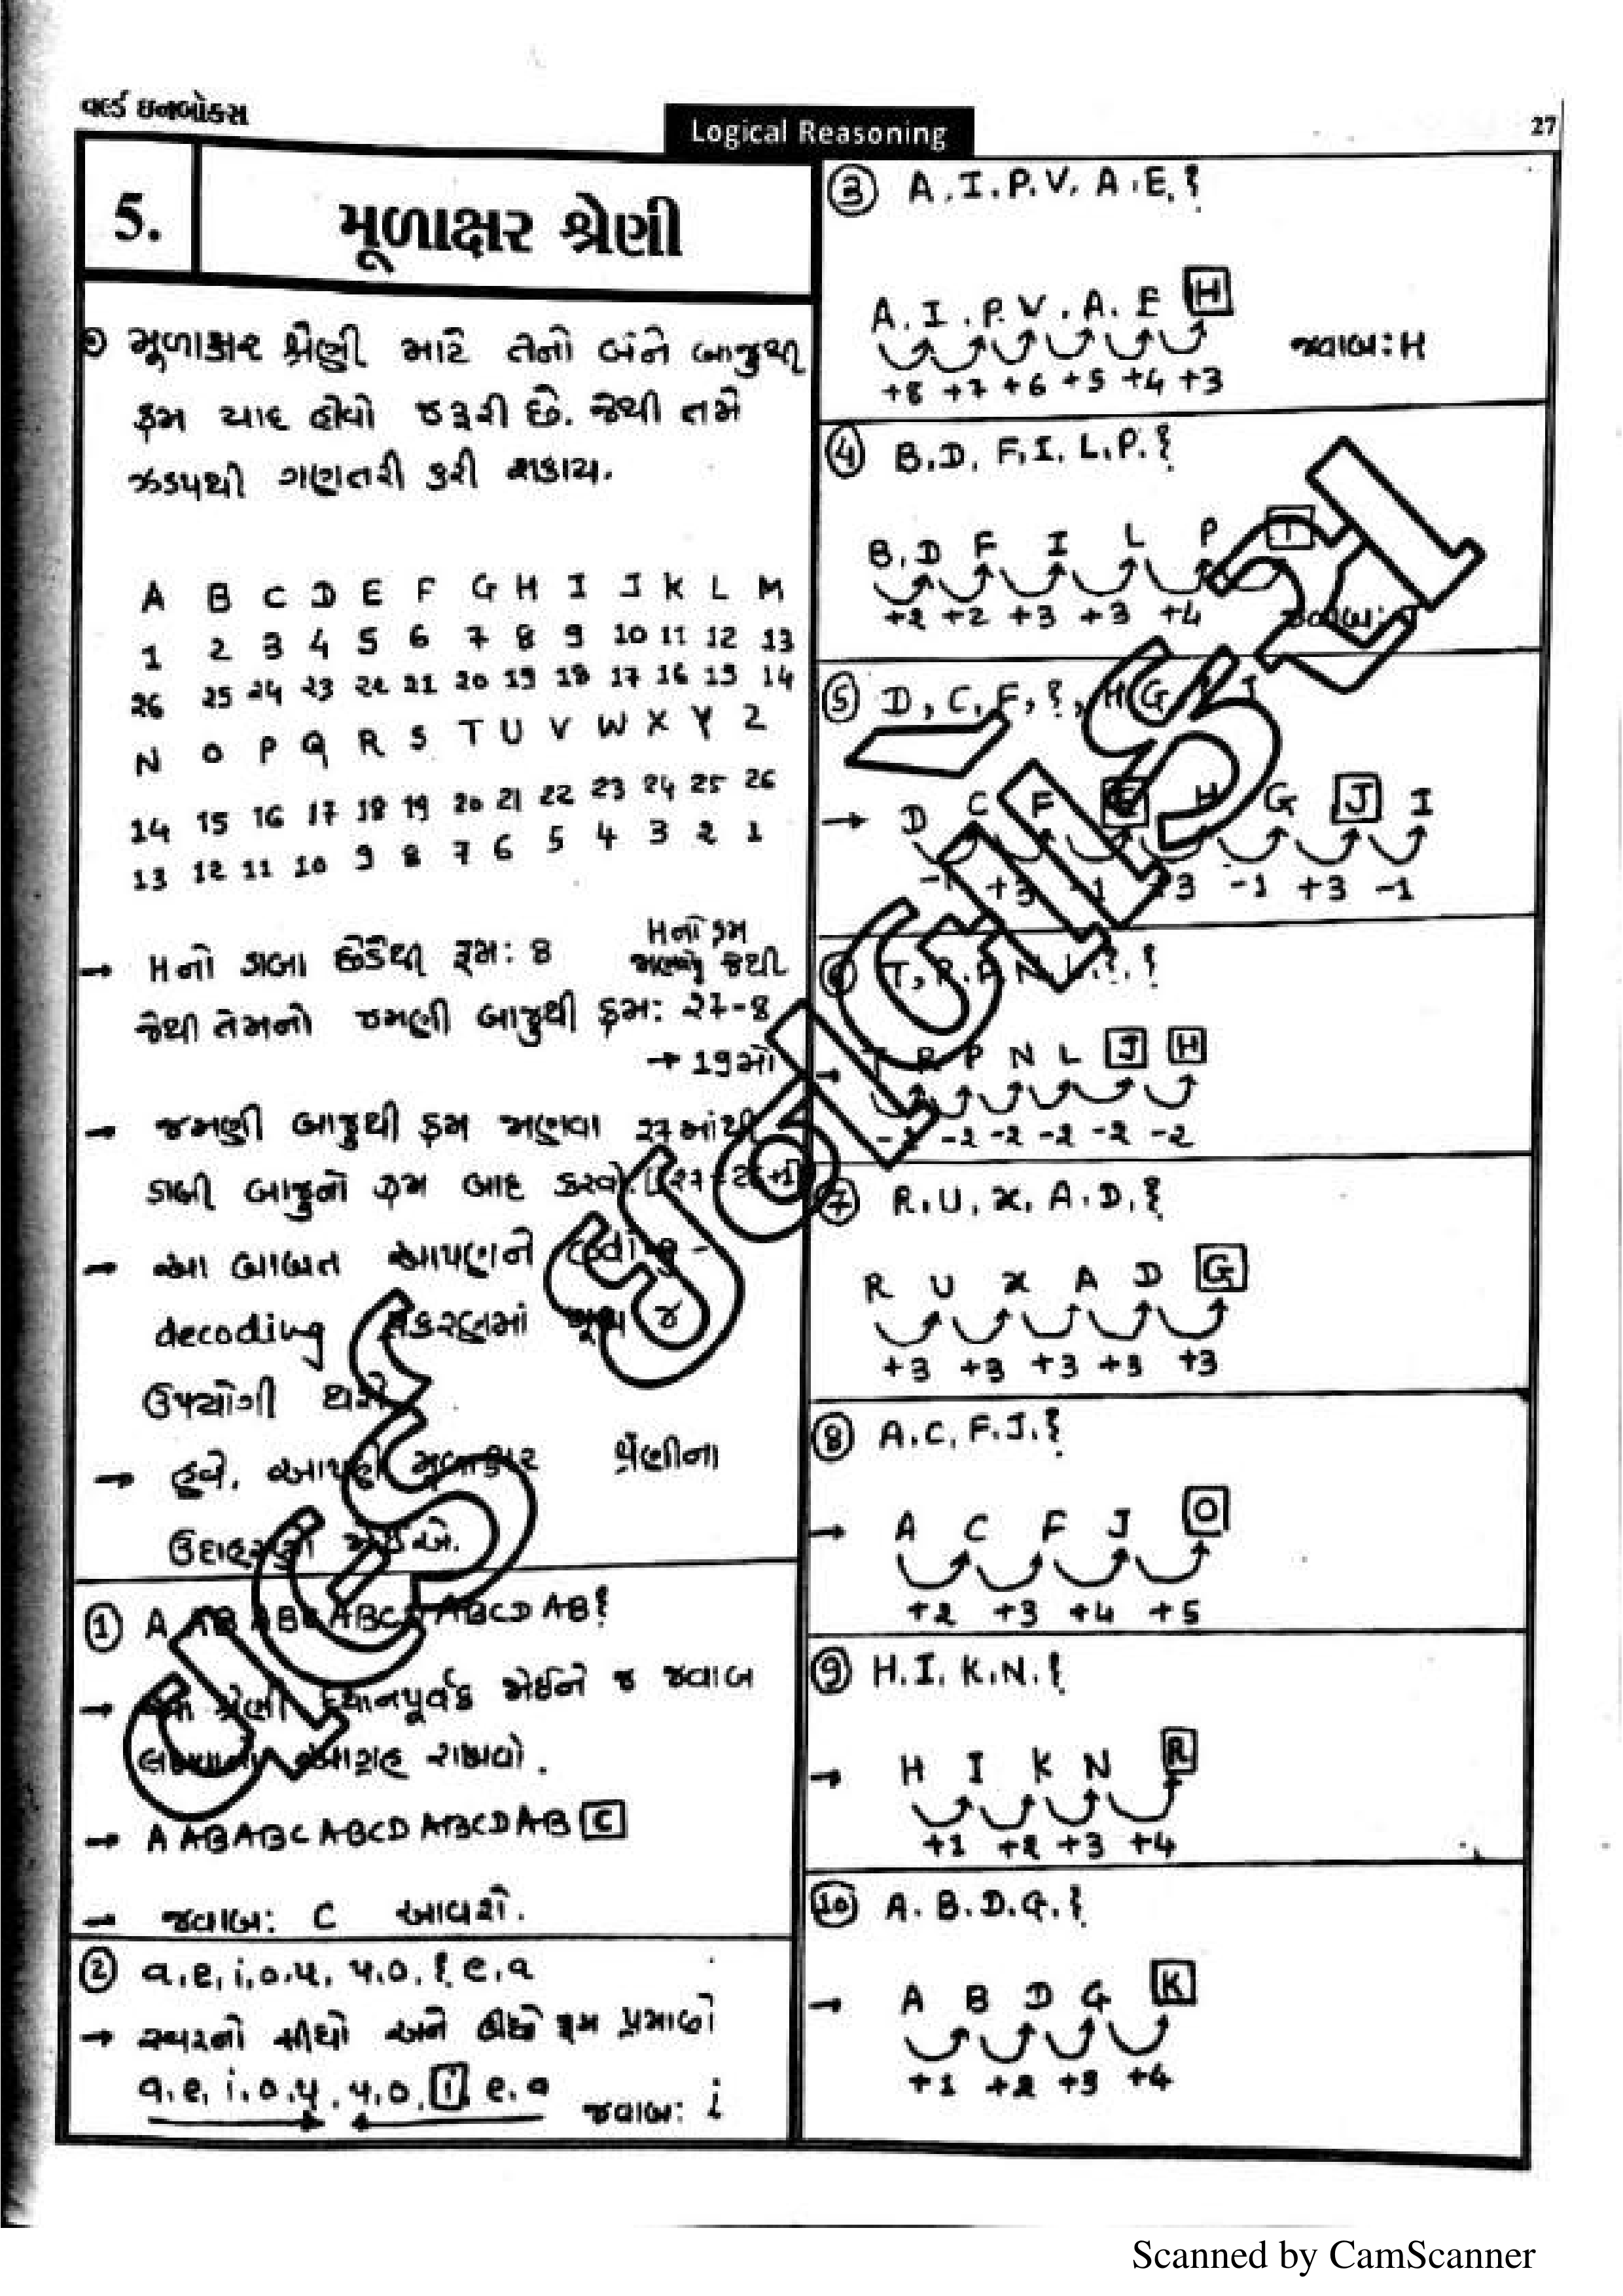 વર્લ્ડ ઇનબોક્સ
Logical Reasoning
27
5.
મૂળાક્ષર શ્રેણી
મૂળાક્ષર શ્રેણી માટે તેનો બંને બાજુથી
ક્રમ યાદ હોવો જરૂરી છે. જેથી તમે
ઝડપથી ગણતરી કરી શકાય.
A B C D E F G H I J K L M
1 2 3 4 5 6 7 8 9 10 11 12 13
26 25 24 23 22 21 20 19 18 17 16 15 14
N O P Q R S T U V W X Y Z
14 15 16 17 18 19 20 21 22 23 24 25 26
13 12 11 10 9 8 7 6 5 4 3 2 1
→ H નો ડાબા છેડેથી ક્રમ: 8
H નો ક્રમ
જેથી તેમનો જમણી બાજુથી ક્રમ: 27-8
→ 19મો
→ જમણી બાજુથી ક્રમ જાણવા 27 માંથી
ડાબી બાજુનો ક્રમ બાદ કરવો.
→ આ બાબત આપણને coding -
decoding પ્રકરણમાં ખૂબ જ
ઉપયોગી થશે
→ હવે, આપણે મૂળાક્ષર શ્રેણીના
ઉદાહરણો જોઈએ.
① A AB ABC ABCD ABCD AB?
→ આ શ્રેણી ધ્યાનપૂર્વક જોઈને જ જવાબ
આગ્રહ રાખવો.
→ A AB ABC ABCD ABCD AB C
→ જવાબ: C આવશે.
② a, e, i, o, u, u, o, ?, e, a
→ સ્વરનો સીધો અને ઊંધો ક્રમ પ્રમાણે
a, e, i, o, u, u, o, i, e, a જવાબ: i
③ A, I, P, V, A, E, ?
A, I, P, V, A, E H
+8 +7 +6 +5 +4 +3
જવાબ: H
④ B, D, F, I, L, P, ?
B, D F I L P T
+2 +2 +3 +3 +4
⑤ D, C, F, ?, H, G
→ D C F E H G J I
-1 +3 -1 +3 -1 +3 -1
⑥ T, R, P, N, L, ?, ?
→ T R P N L J H
-2 -2 -2 -2 -2 -2
⑦ R, U, X, A, D, ?
R U X A D G
+3 +3 +3 +3 +3
⑧ A, C, F, J, ?
→ A C F J O
+2 +3 +4 +5
⑨ H, I, K, N, ?
→ H I K N R
+1 +2 +3 +4
⑩ A, B, D, G, ?
→ A B D G K
+1 +2 +3 +4
Scanned by CamScanner